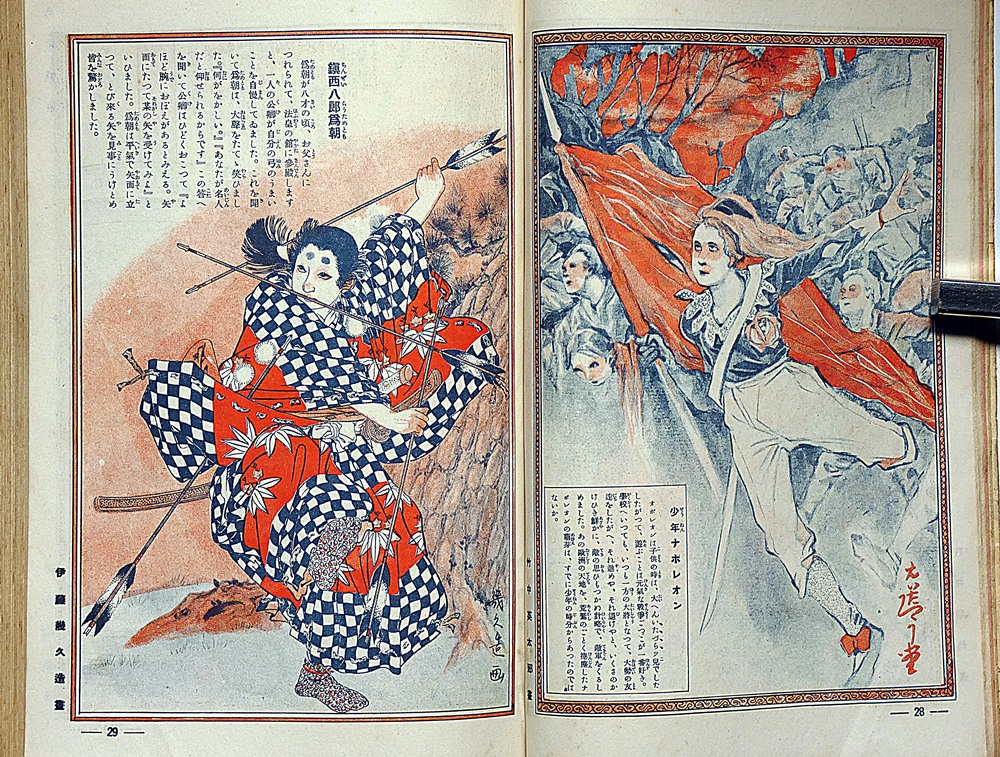 少年ナポレオン
ナポレオンは子供の時は、大へんいたづらッ兒でした
したがつて、遊ぶことは元氣な戰爭ごつこが一番好き。
學校へいつても、いつも一方の大將となつて、大勢の友
達をしたがへ、それ進めや、それ退けやと、いくさのか
けひき鮮かに、敵の思ひもつかぬ計略で、敵軍をくるし
めました。あの歐洲の天地を、荒鷲のごとく したナ
ポレオンの は、すでに少年の時分からあつたのでは
ないか。
竹中英太郎畫
28
鎭西八郎爲朝
爲朝が八才の頃、お父さんに
つれられて、法皇の館に參殿します
と、一人の公卿が自分の弓のうまい
ことを自慢してゐました。これを聞
いて爲朝は、大聲をたてゝ笑ひまし
た。『何がをかしい。』『あなたが名人
だと仰せられるからです』この答へ
を聞いて公卿はひどくおこつて『よ
ほど腕におぼえがあるとみえる。矢
面にたつて某の矢を受けてみよ』と
いひました。爲朝は平氣で矢面に立
つて、とび來る矢を見事にうけとめ
皆を驚かしました。
幾久造画
伊藤幾久造畫
29